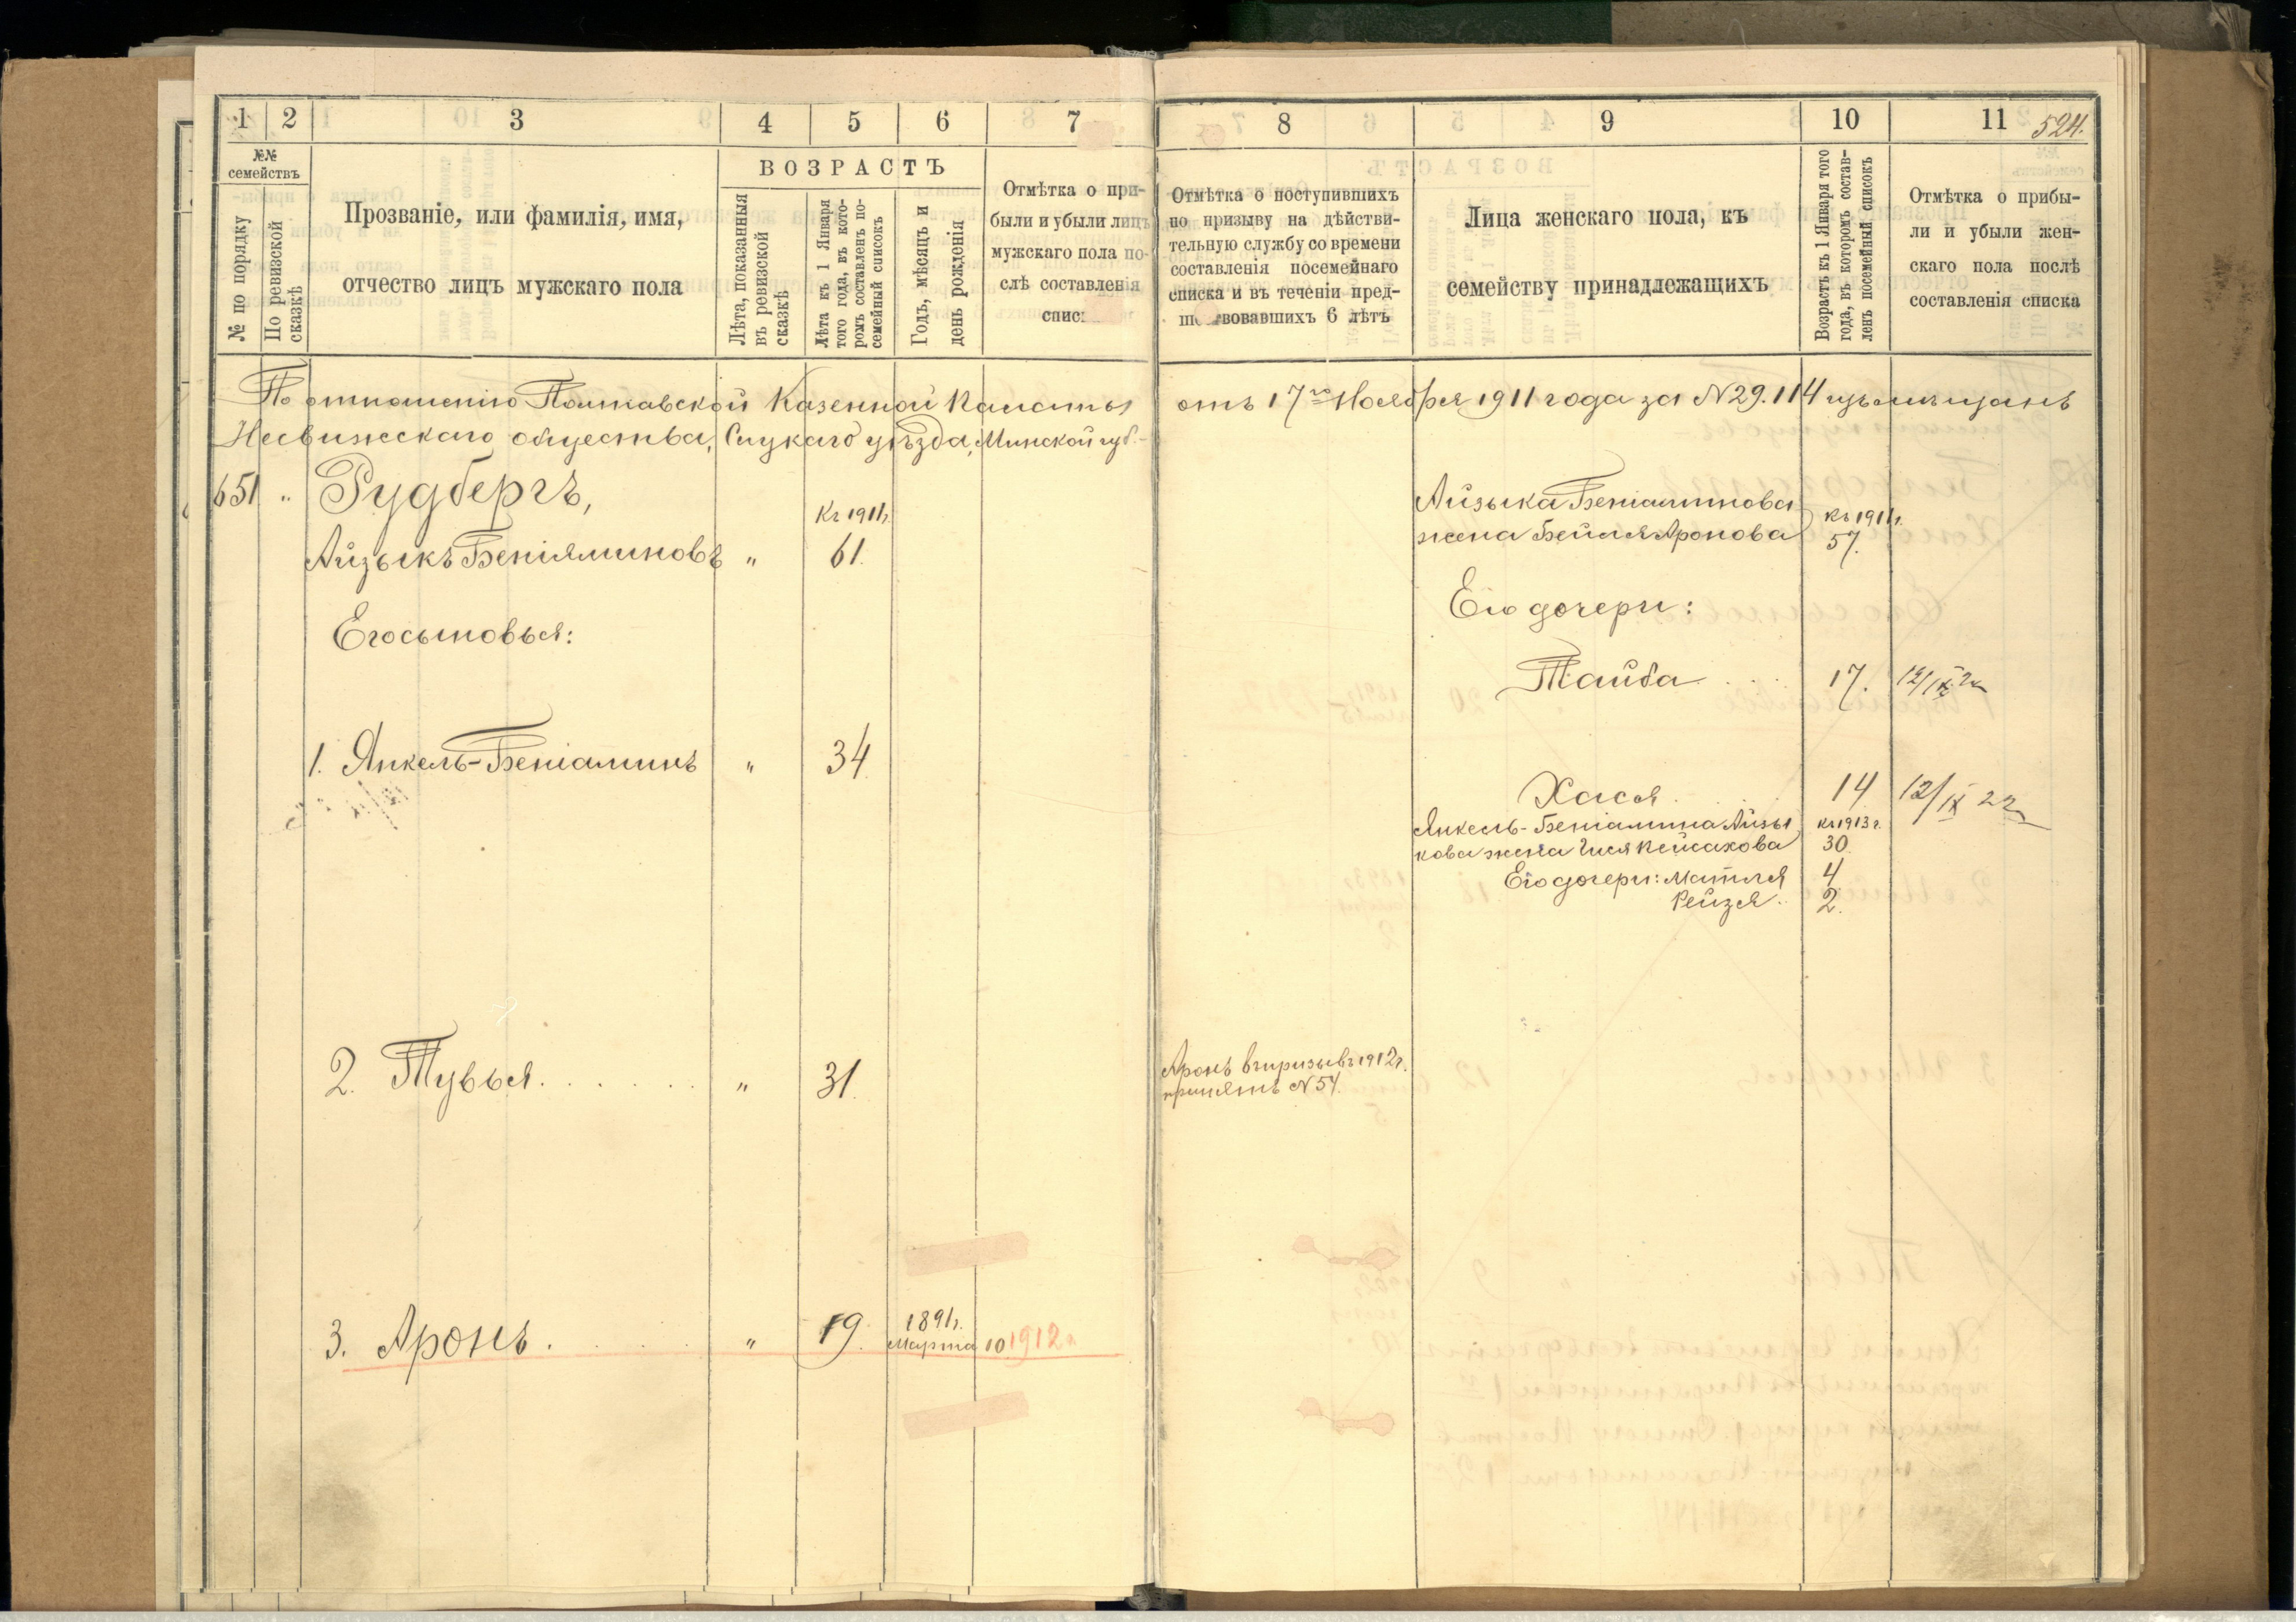 1 2 3 4 5 6 7
№№ семействъ
№ по порядку
По ревизской сказкѣ
Прозваніе, или фамилія, имя,
отчество лицъ мужскаго пола
ВОЗРАСТЪ
Лѣта, показанныя
въ ревизской
сказкѣ
Лѣта къ 1 Января
того года, въ кото-
ромъ составленъ по-
семейный списокъ
Годъ, мѣсяцъ и
день рожденія
Отмѣтка о при-
были и убыли лицъ
мужскаго пола по-
слѣ составленія
спис
По отношенію Полтавской Казенной Палаты
Несвижескаго общества, Слуцкаго уѣзда, Минской губ.-
651 " Рудбергъ,
Къ 1911г.
Айзыкъ Беніяминовъ " 61.
Его сыновья:
1. Янкель-Беніаминъ " 34
2. Тувья. . . . . . . " 31.
3. Аронъ. . . . . " 19. 1891г.
Марта 10 1912г
8 9 10 11 524.
Отмѣтка о поступившихъ
по призыву на дѣйстви-
тельную службу со времени
составленія посемейнаго
списка и въ теченіи пред-
ше вовавшихъ 6 лѣтъ
Лица женскаго пола, къ
семейству принадлежащихъ
Возрастъ къ 1 Января того
года, въ которомъ состав-
ленъ посемейный списокъ
Отмѣтка о прибы-
ли и убыли жен-
скаго пола послѣ
составленія списка
отъ 17го Ноября 1911 года за N 29.114 изъ мѣщанъ
Айзыка Беніаминова
жена Бейля Аронова
къ 1911г.
57.
Его дочери:
Тайба . . . 17. 12/IX 22
Хася . 14 12/IX 22
Янкель-Беніамина Айзы
кова жена Гися Пейсахова
къ 1913г.
30.
Его дочери: Матля 4
Рейзя. 2.
Аронъ въ призывъ 1912г.
принятъ N 54.